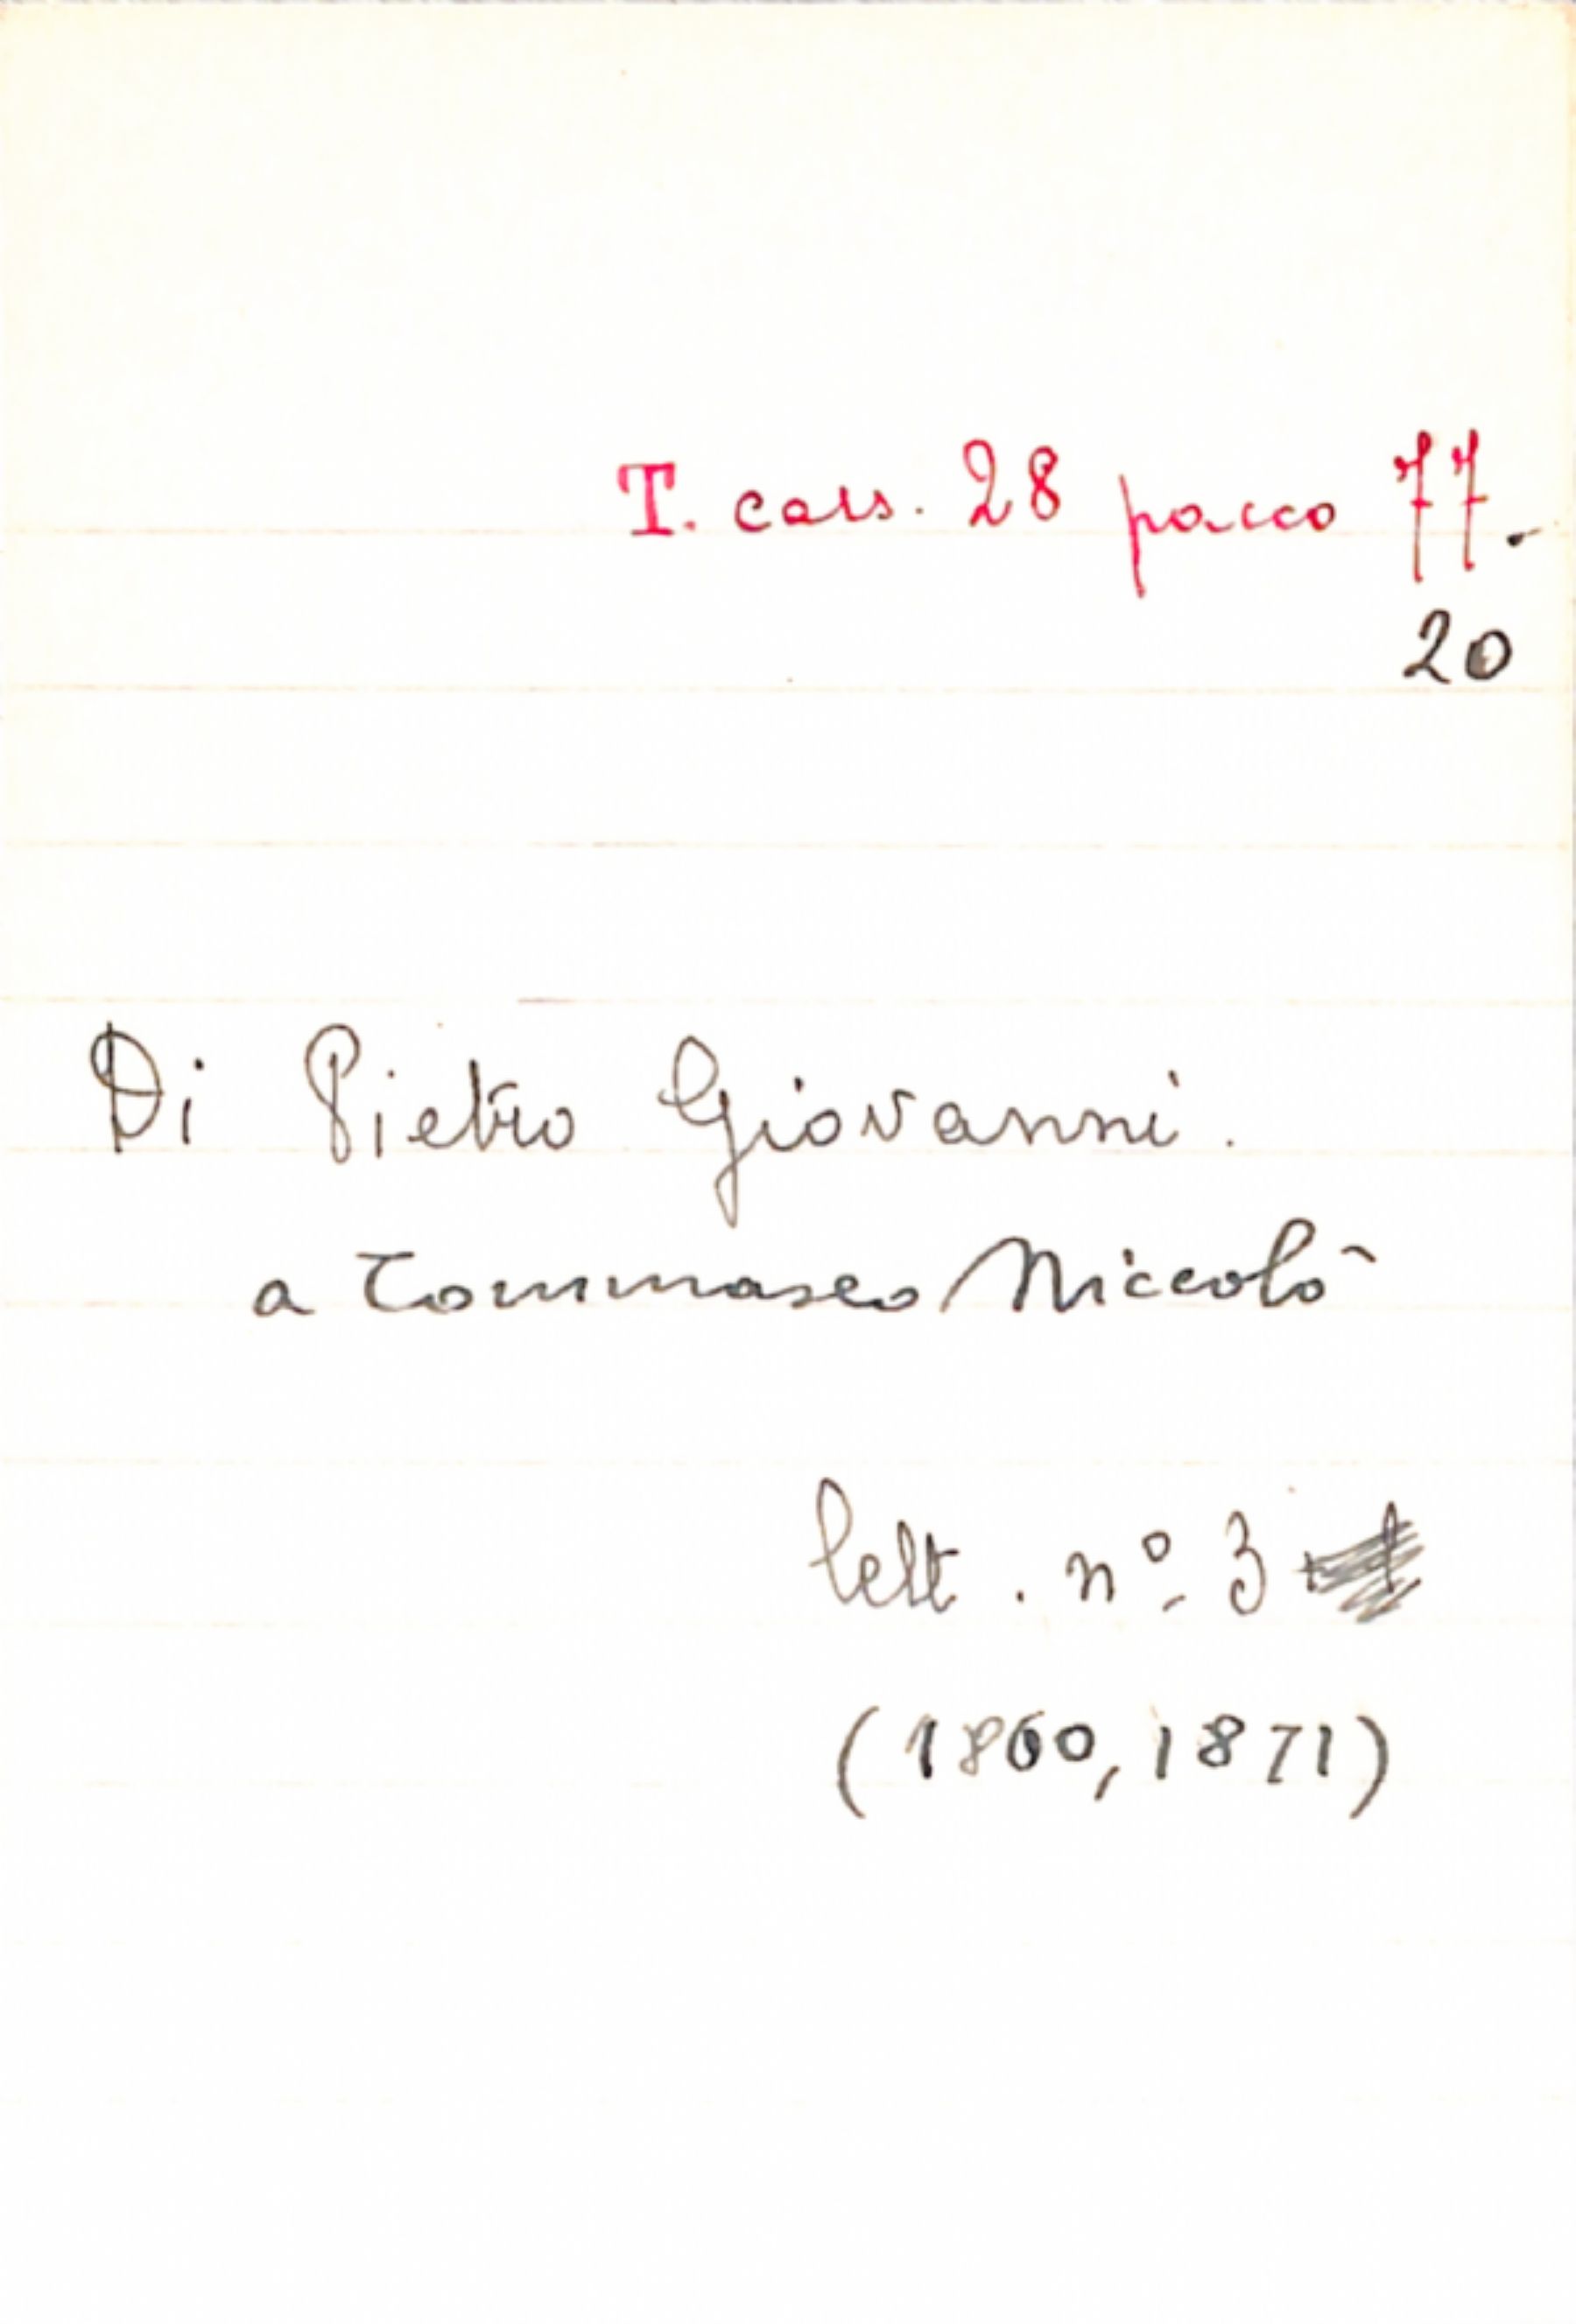 T. cass. 28 pacco 77.
20
Di Pietro Giovanni.
a Tommaseo Niccolò
lett. nº 3
(1860, 1871)